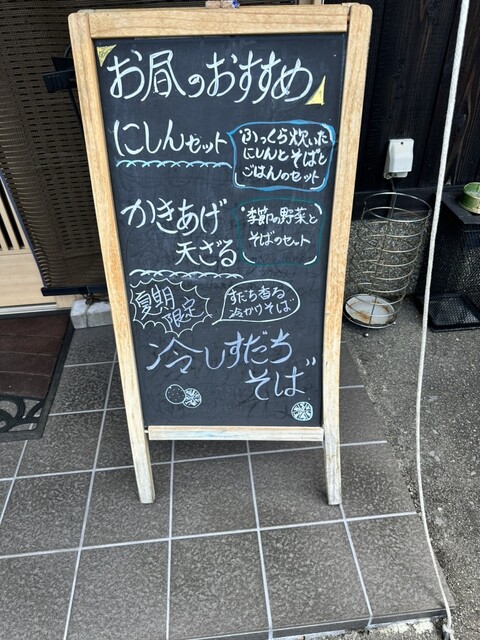 お昼のおすすめ
にしんセット
ふっくら炊いた
にしんとそばと
ごはんのセット
かきあげ
天ざる
季節の野菜と
そばのセット
夏期
限定
すだち香る
冷かけそば
冷しすだち
そば